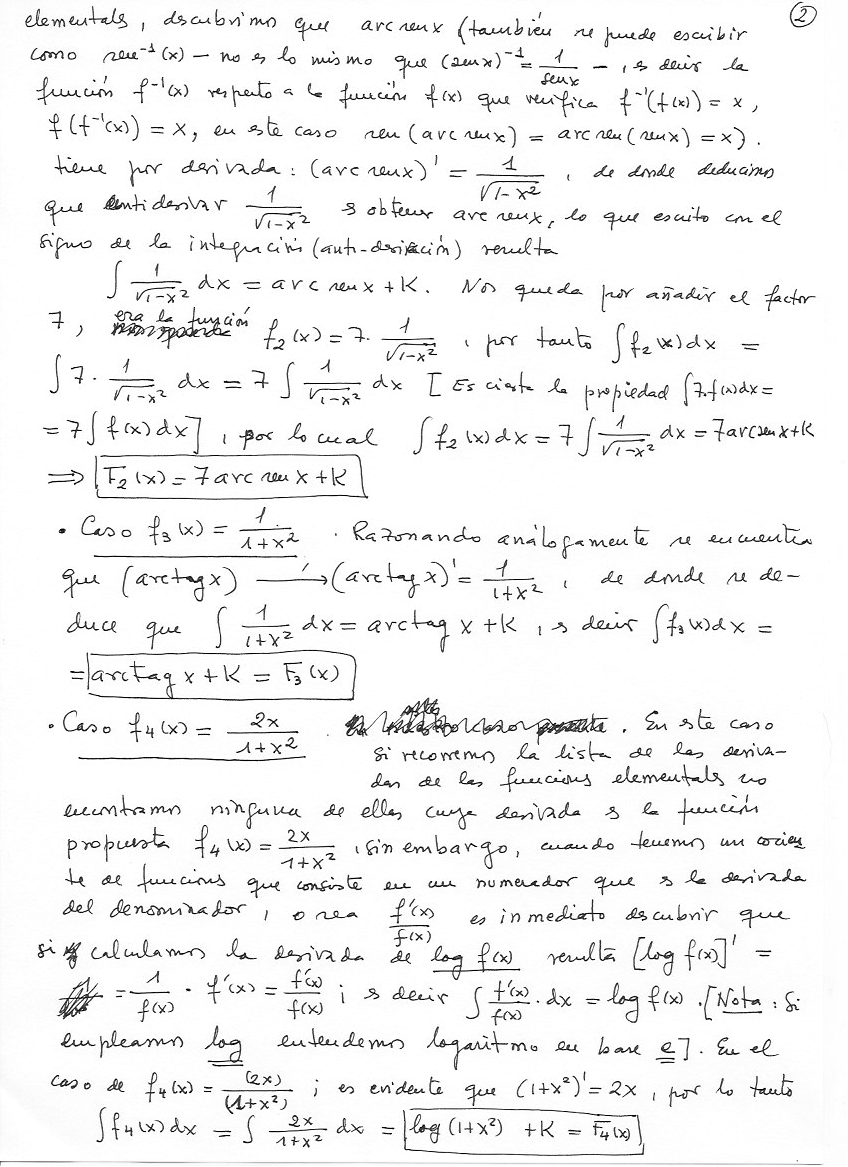 ②
elementales, descubrimos que arc sen x (también se puede escribir
como sen⁻¹(x) – no es lo mismo que (sen x)⁻¹ = 1/sen x – , es decir la
función f⁻¹(x) respecto a la función f(x) que verifica f⁻¹(f(x)) = x,
f(f⁻¹(x)) = x, en este caso sen(arc sen x) = arc sen(sen x) = x).
tiene por derivada: (arc sen x)' = 1/√(1-x²), de donde deducimos
que antiderivar 1/√(1-x²) es obtener arc sen x, lo que escrito con el
signo de la integración (anti-derivación) resulta
∫ 1/√(1-x²) dx = arc sen x + K. Nos queda por añadir el factor
7, era la función f₂(x) = 7 · 1/√(1-x²), por tanto ∫ f₂(x) dx =
∫ 7 · 1/√(1-x²) dx = 7 ∫ 1/√(1-x²) dx [Es cierta la propiedad ∫ 7·f(x) dx =
= 7 ∫ f(x) dx], por lo cual ∫ f₂(x) dx = 7 ∫ 1/√(1-x²) dx = 7 arc sen x + K
⟹ F₂(x) = 7 arc sen x + K
· Caso f₃(x) = 1/(1+x²) . Razonando análogamente se encuentra
que (arctag x) —'→ (arctag x)' = 1/(1+x²), de donde se de-
duce que ∫ 1/(1+x²) dx = arctag x + K, es decir ∫ f₃(x) dx =
= arctag x + K = F₃(x)
· Caso f₄(x) = 2x/(1+x²) . En este caso
si recorremos la lista de las deriva-
das de las funciones elementales no
encontramos ninguna de ellas cuya derivada es la función
propuesta f₄(x) = 2x/(1+x²), sin embargo, cuando tenemos un cocien
te de funciones que consiste en un numerador que es la derivada
del denominador, o sea f'(x)/f(x) es inmediato descubrir que
si calculamos la derivada de log f(x) resulta [log f(x)]' =
= 1/f(x) · f'(x) = f'(x)/f(x) ; es decir ∫ f'(x)/f(x) · dx = log f(x) . [Nota : Si
empleamos log entendemos logaritmo en base e]. En el
caso de f₄(x) = (2x)/(1+x²) ; es evidente que (1+x²)' = 2x, por lo tanto
∫ f₄(x) dx = ∫ 2x/(1+x²) dx = log (1+x²) + K = F₄(x)